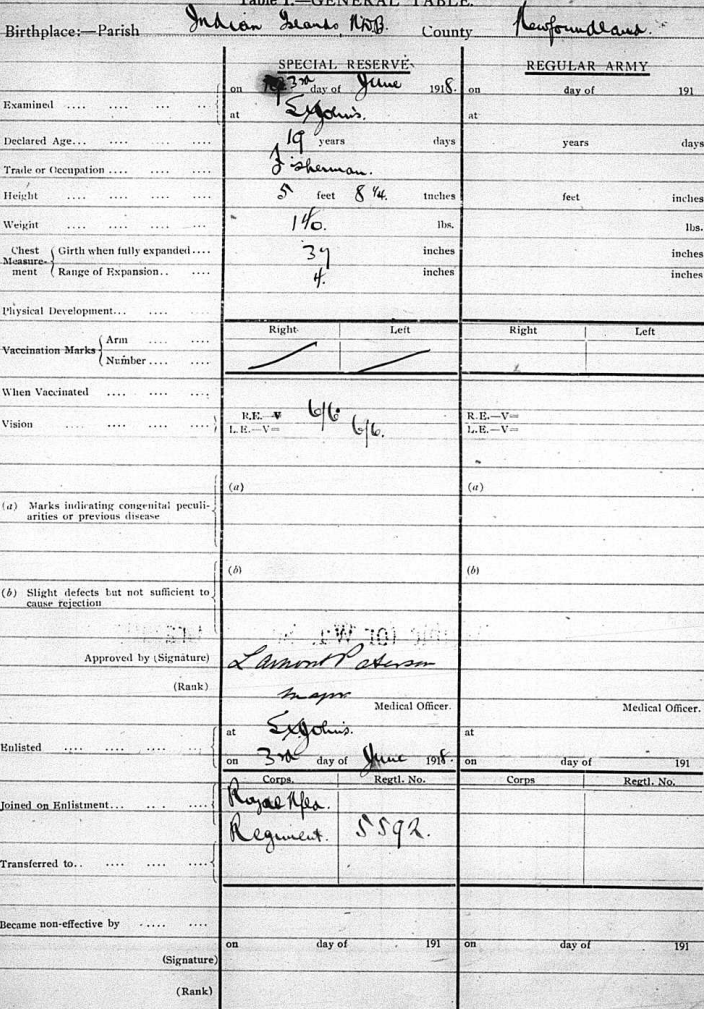 Table I.—GENERAL TABLE.
Birthplace:—Parish Indian Islands, N.D.B. County Newfoundland.
SPECIAL RESERVE. REGULAR ARMY
Examined .... .... ... ... on 3rd day of June 1918. on day of 191
at St John's. at
Declared Age... .... ... .... 19 years days years days
Trade or Occupation .... .... Fisherman.
Height .... .... .... .... 5 feet 8 1/4. inches feet inches
Weight .... .... .... ... 140. lbs. lbs.
Chest Measurement Girth when fully expanded.... 37 inches inches
Range of Expansion.. .... 4. inches inches
Physical Development... .... ....
Right Left Right Left
Vaccination Marks Arm .... ....
Number .... ....
When Vaccinated .... .... ....
Vision .... .... .... .... R.E.—V= 6/6. R.E.—V=
L.E.—V= 6/6. L.E.—V=
(a) (a)
(a) Marks indicating congenital peculi-
arities or previous disease
(b) (b)
(b) Slight defects but not sufficient to
cause rejection
Approved by (Signature) Lamont Paterson
(Rank) Major
Medical Officer. Medical Officer.
Enlisted .... .... ... ... at St John's. at
on 3rd day of June 1918. on day of 191
Corps. Regtl. No. Corps Regtl. No.
Joined on Enlistment... .. .... Royal Nfld.
Regiment. 5592.
Transferred to.. .... .... ....
Became non-effective by ..... ....
on day of 191 on day of 191
(Signature)
(Rank)